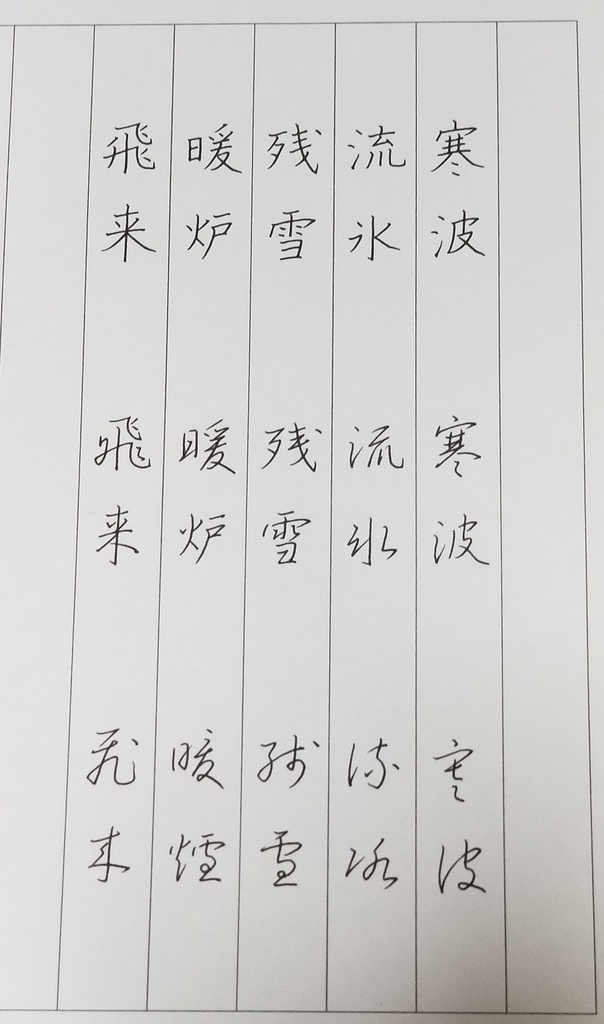 寒波 寒波 寒波
流氷 流氷 流氷
残雪 残雪 残雪
暖炉 暖炉 暖爐
飛来 飛来 飛来